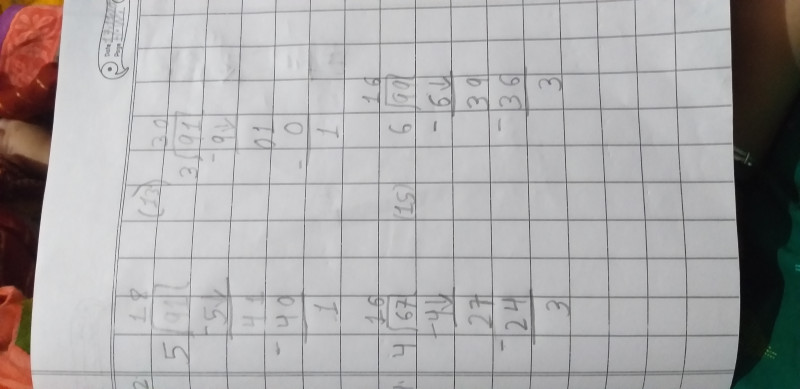 Date
Page
18
5 91
-5↓
41
-40
1
(13) 30
3 91
-9↓
01
- 0
1
16
4 67
-4↓
27
-24
3
(15) 16
6 99
- 6↓
39
- 36
3